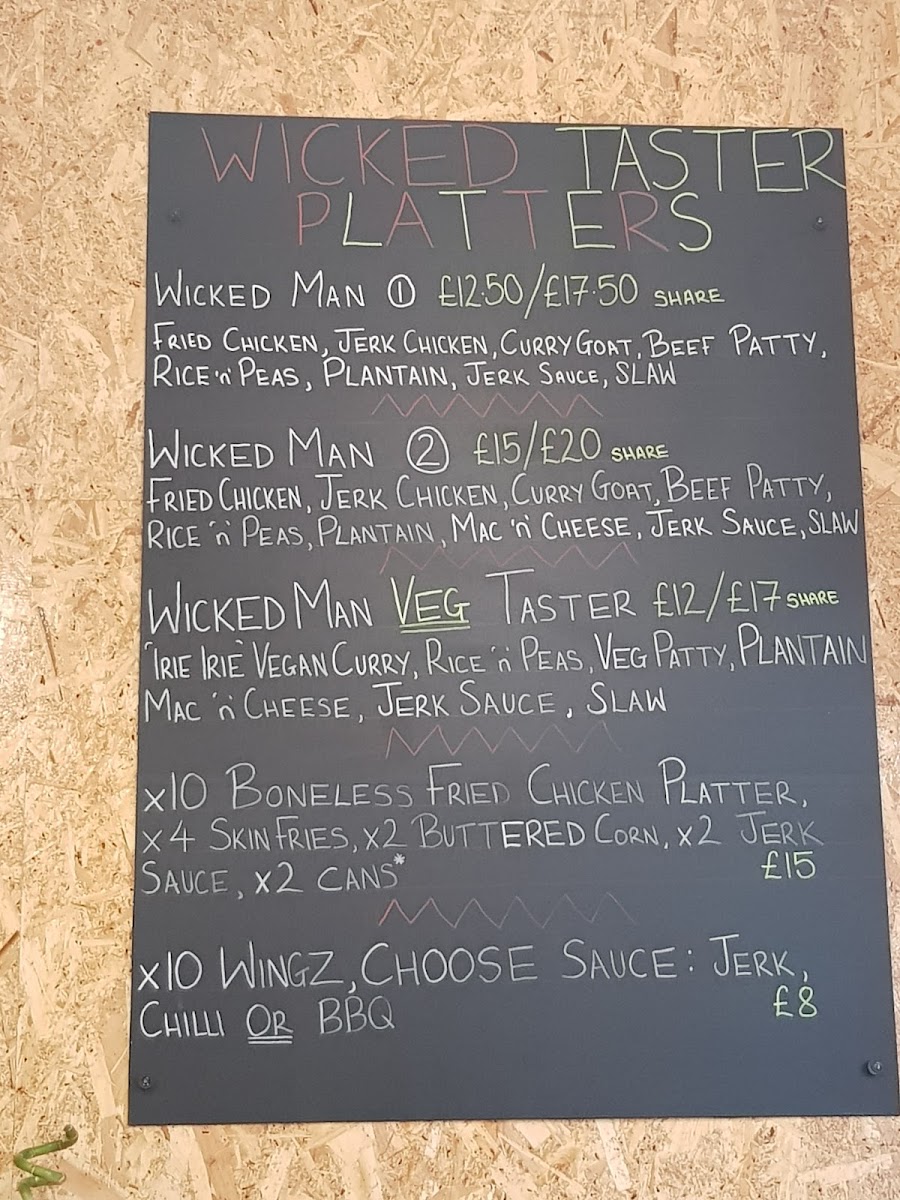 WICKED TASTER
PLATTERS
WICKED MAN ① £12.50/£17.50 SHARE
FRIED CHICKEN, JERK CHICKEN, CURRY GOAT, BEEF PATTY,
RICE 'n' PEAS, PLANTAIN, JERK SAUCE, SLAW
WICKED MAN ② £15/£20 SHARE
FRIED CHICKEN, JERK CHICKEN, CURRY GOAT, BEEF PATTY,
RICE 'n' PEAS, PLANTAIN, MAC 'n' CHEESE, JERK SAUCE, SLAW
WICKED MAN VEG TASTER £12/£17 SHARE
'IRIE IRIE' VEGAN CURRY, RICE 'n' PEAS, VEG PATTY, PLANTAIN
MAC 'n' CHEESE, JERK SAUCE, SLAW
x10 BONELESS FRIED CHICKEN PLATTER,
x4 SKIN FRIES, x2 BUTTERED CORN, x2 JERK
SAUCE, x2 CANS* £15
x10 WINGZ, CHOOSE SAUCE: JERK,
CHILLI OR BBQ £8